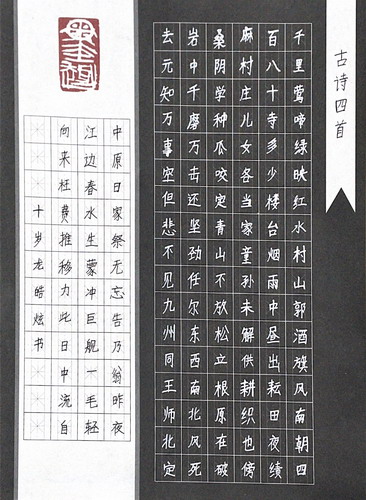 古诗四首
千里莺啼绿映红水村山郭酒旗风南朝四
百八十寺多少楼台烟雨中昼出耘田夜绩
麻村庄儿女各当家童孙未解供耕织也傍
桑阴学种瓜咬定青山不放松立根原在破
岩中千磨万击还坚劲任尔东西南北风死
去元知万事空但悲不见九州同王师北定
中原日家祭无忘告乃翁昨夜
江边春水生蒙冲巨舰一毛轻
向来枉费推移力此日中流自
十岁龙皓炫书